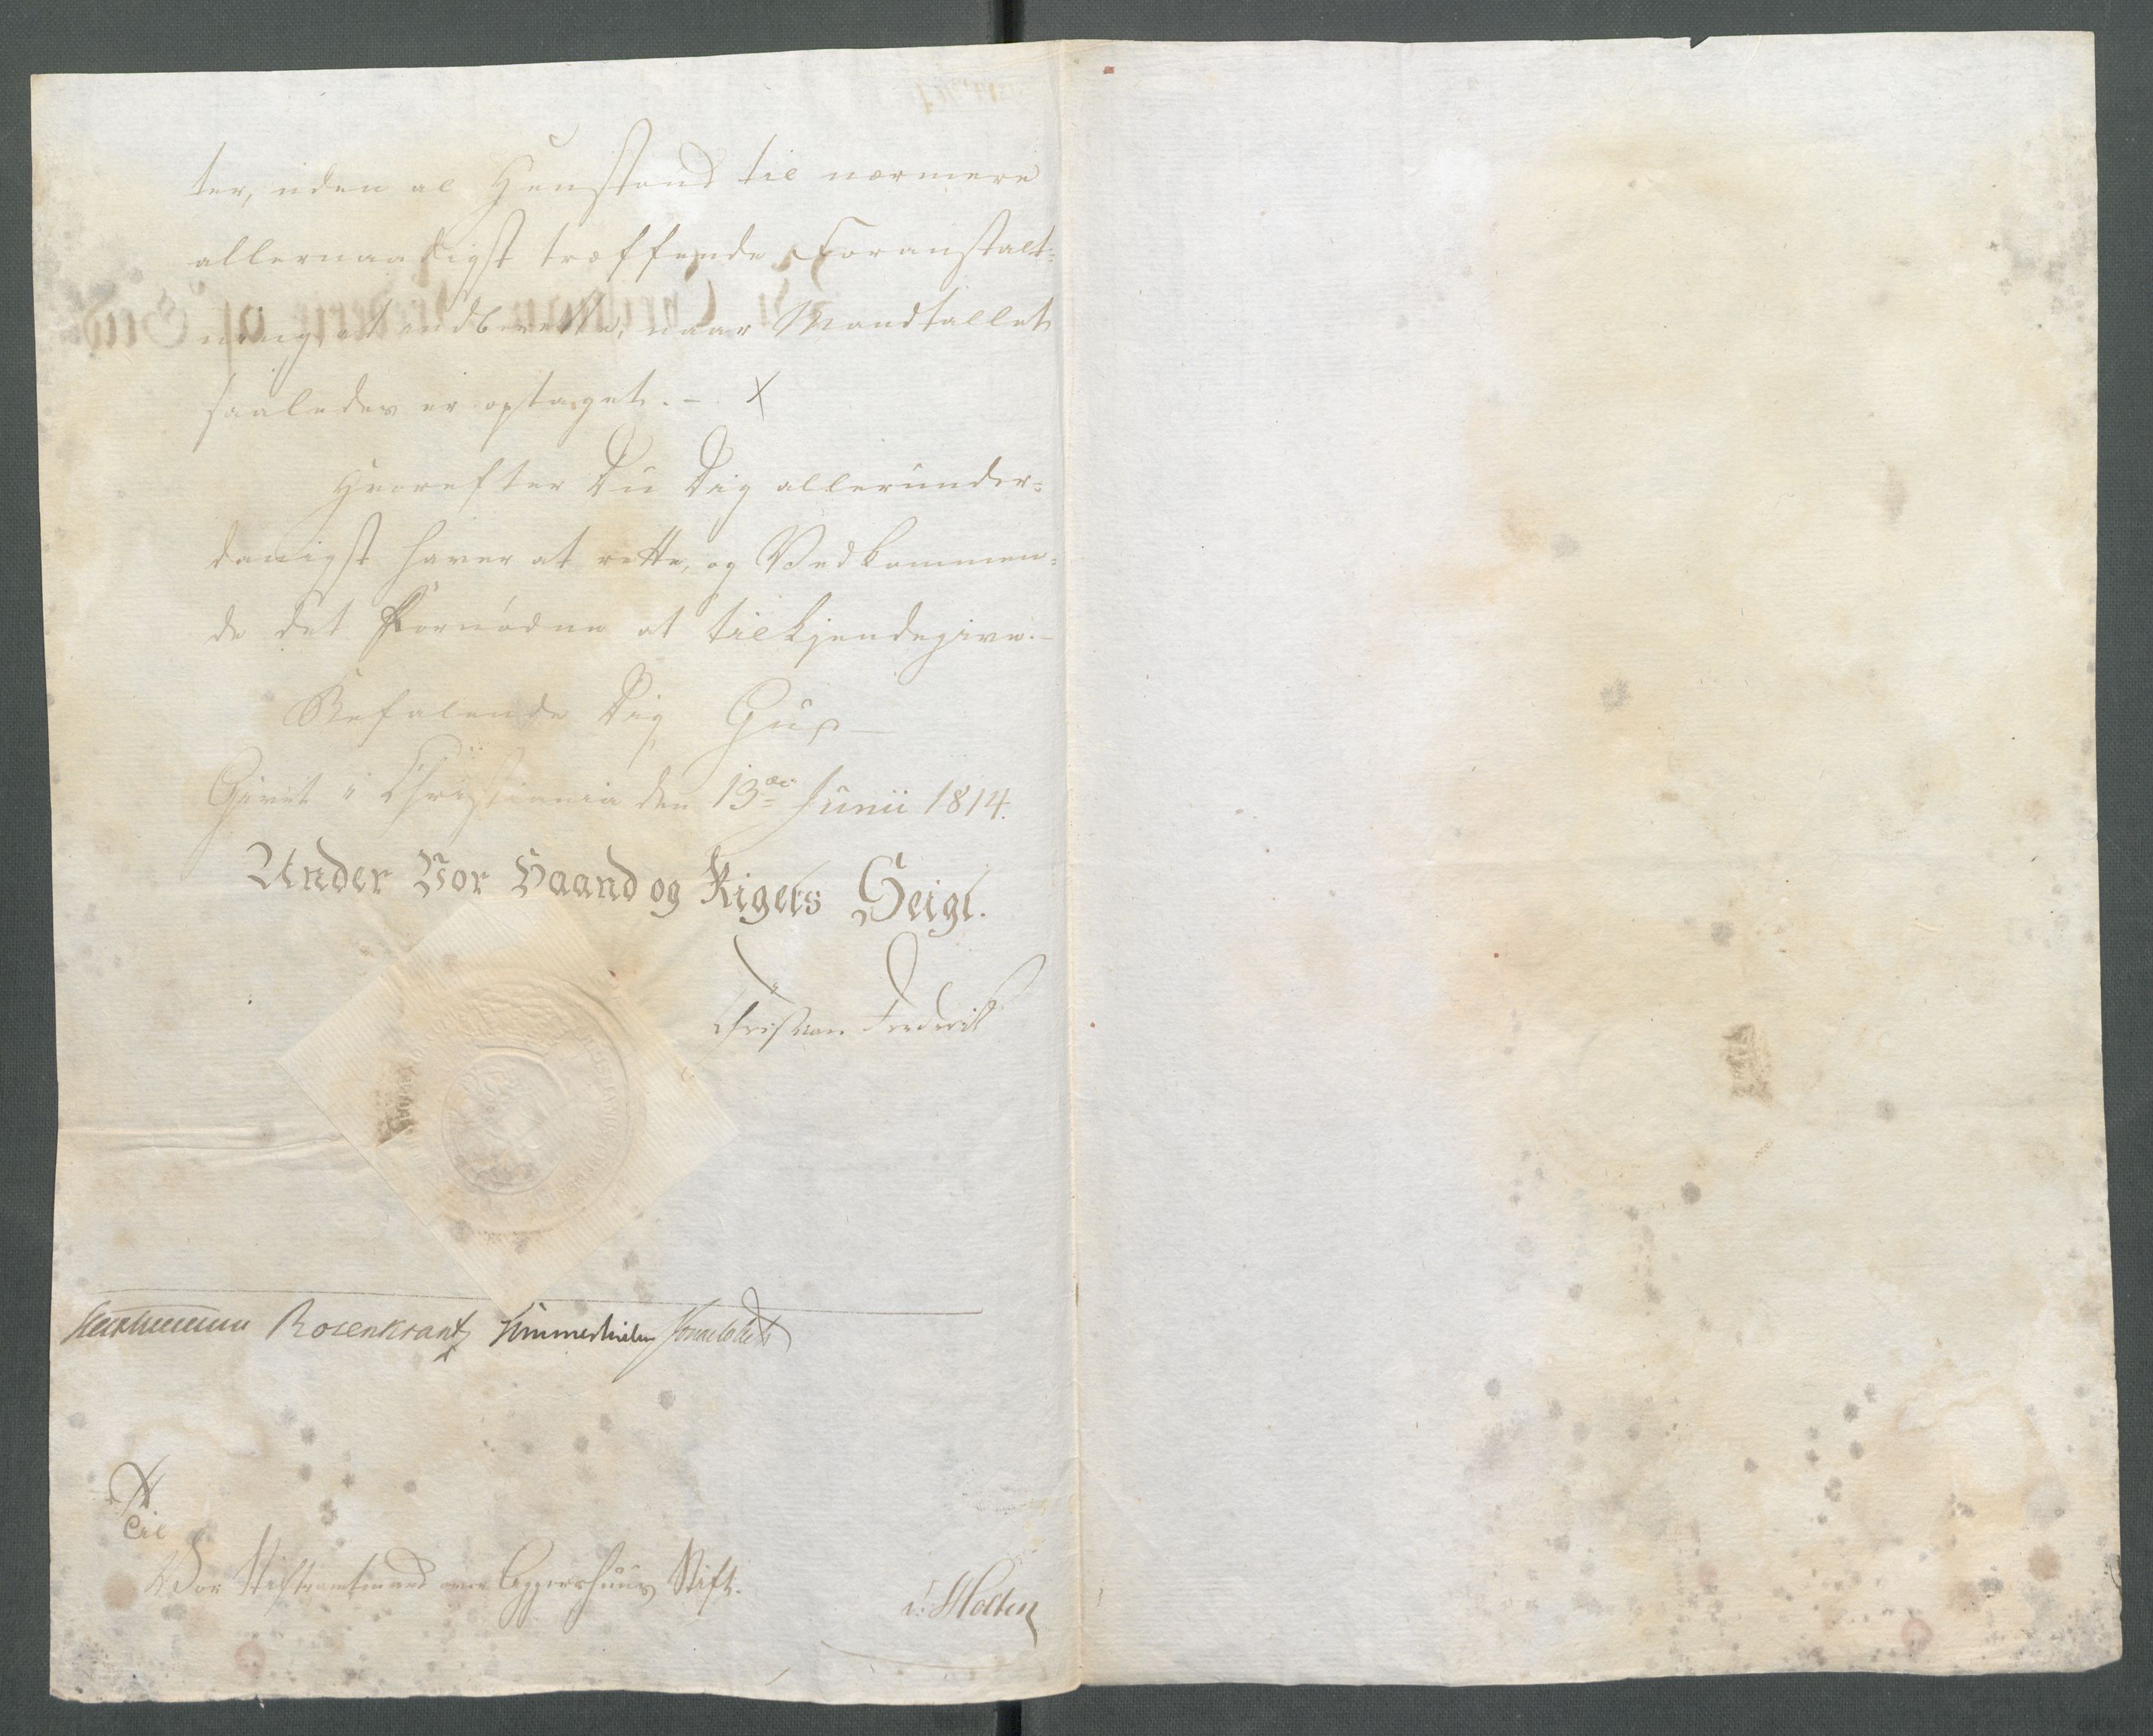 ter, uden al Henstand til nærmere
allernaadigst træffende Foranstalt=
ning, at indberette, naar Mandtallet
saaledes er optaget. - X
Hvorefter Du Dig allerunder=
danigst haver at rette, og Vedkommen=
de det Fornødne at tilkjendegive.-
Befalende Dig Gud
Givet i Christiania den 13de Junii 1814.
Under Vor Haand og Rigets Seigl.
Christian Frederik
Rosenkrantz Sommerhielm
Til
Vor Stiftamtmand over Aggershuus Stift.
v: Holten